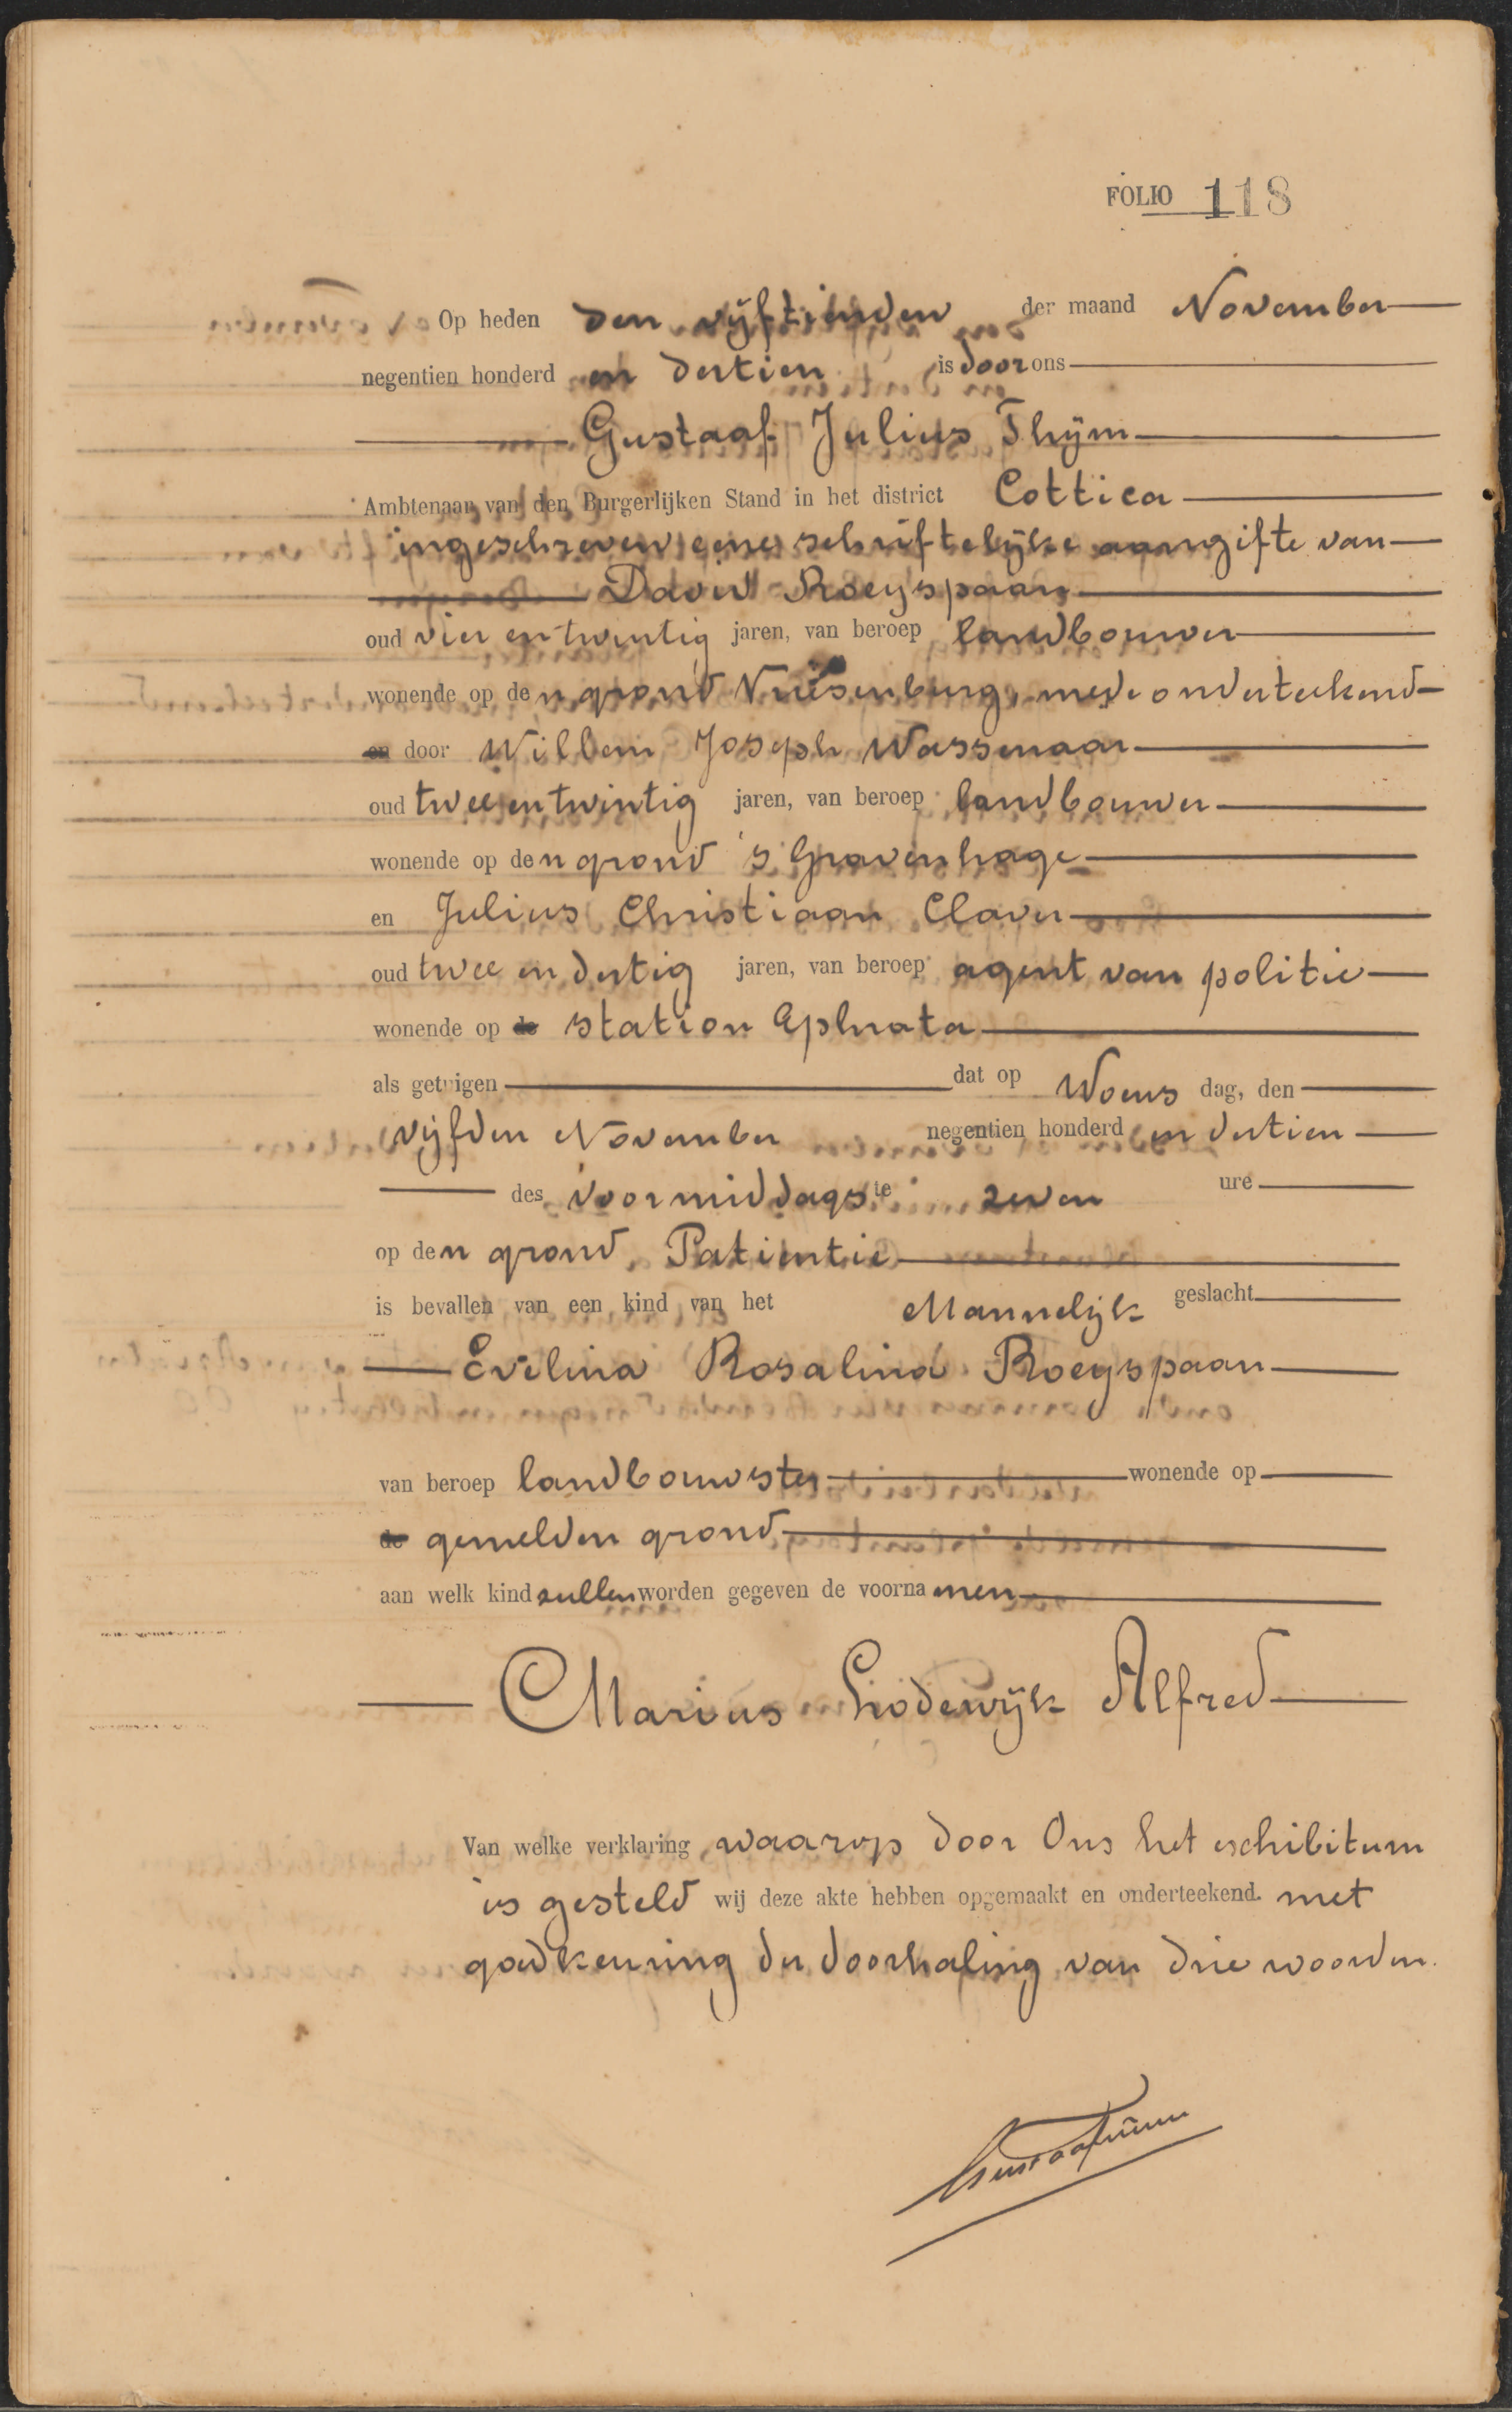 FOLIO 118
Op heden den vijftienden der maand November
negentien honderd en dertien is door ons
Gustaaf Julius Thijm
Ambtenaar van den Burgerlijken Stand in het district Cottica
ingeschreven eene schriftelijke aangifte van
David Roeyspaan
oud vier en twintig jaren, van beroep landbouwer
wonende op den grond Vriesenburg, mede onderteekend
en door Willem Joseph Wassenaar
oud twee en twintig jaren, van beroep landbouwer
wonende op den grond 's Gravenhage
en Julius Christiaan Claver
oud twee en dertig jaren, van beroep agent van politie
wonende op de station Ephrata
als getuigen dat op Woens dag, den
vijfden November negentien honderd en dertien
des voormiddags te zeven ure
op den grond Patientie
is bevallen van een kind van het Mannelijk geslacht
Evelina Rosalina Roeyspaan
van beroep landbouwster wonende op
de gemelden grond
aan welk kind zullen worden gegeven de voornamen
Marius Lodewijk Alfred
Van welke verklaring, waarop door Ons het exhibitum
is gesteld wij deze akte hebben opgemaakt en onderteekend. met
goedkeuring der doorhaling van drie woorden.